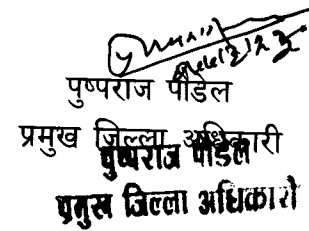 पुष्पराज पौडेल
प्रमुख जिल्ला अधिकारी
पुष्पराज पौडेल
प्रमुख जिल्ला अधिकारी